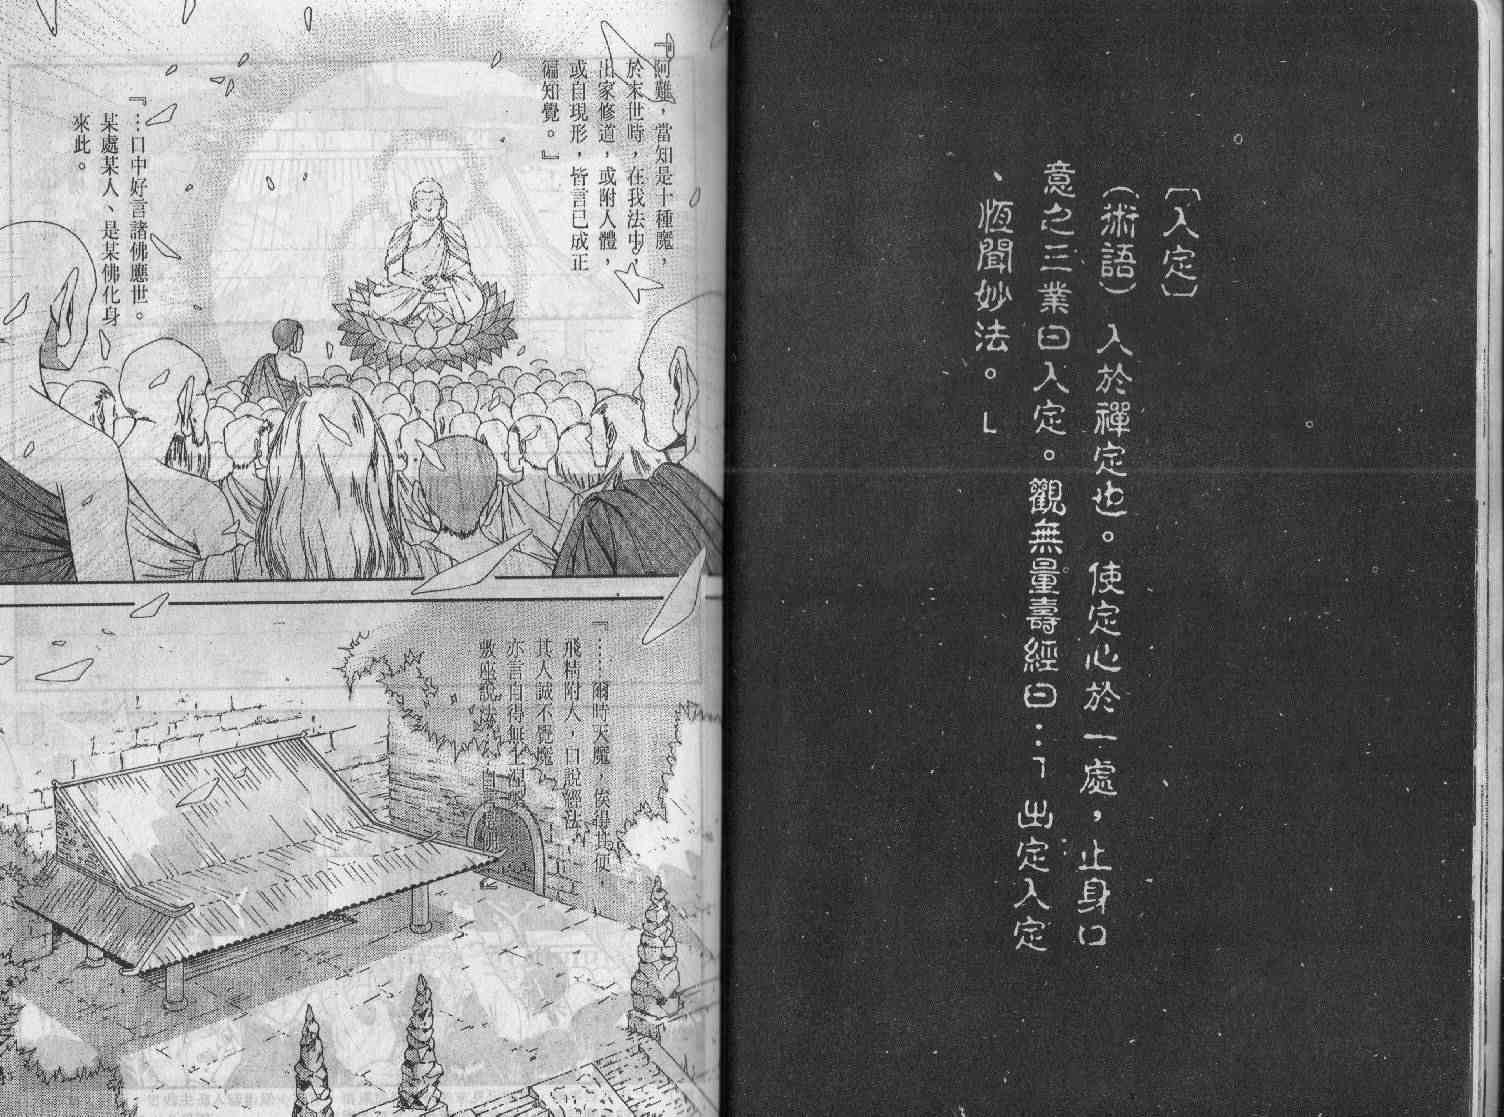 〔入定〕
（術語）入於禪定也。使定心於一處，止身口
意之三業曰入定。觀無量壽經曰：「出定入定
、恆聞妙法。」
『阿難，當知是十種魔，
於末世時，在我法中，
出家修道，或附人體，
或自現形，皆言已成正
徧知覺。』
『…口中好言諸佛應世。
某處某人、是某佛化身
來此。
『……爾時天魔，俟得其便，
飛精附人，口說經法。
其人誠不覺魔
亦言自得無上涅
敷座說法。